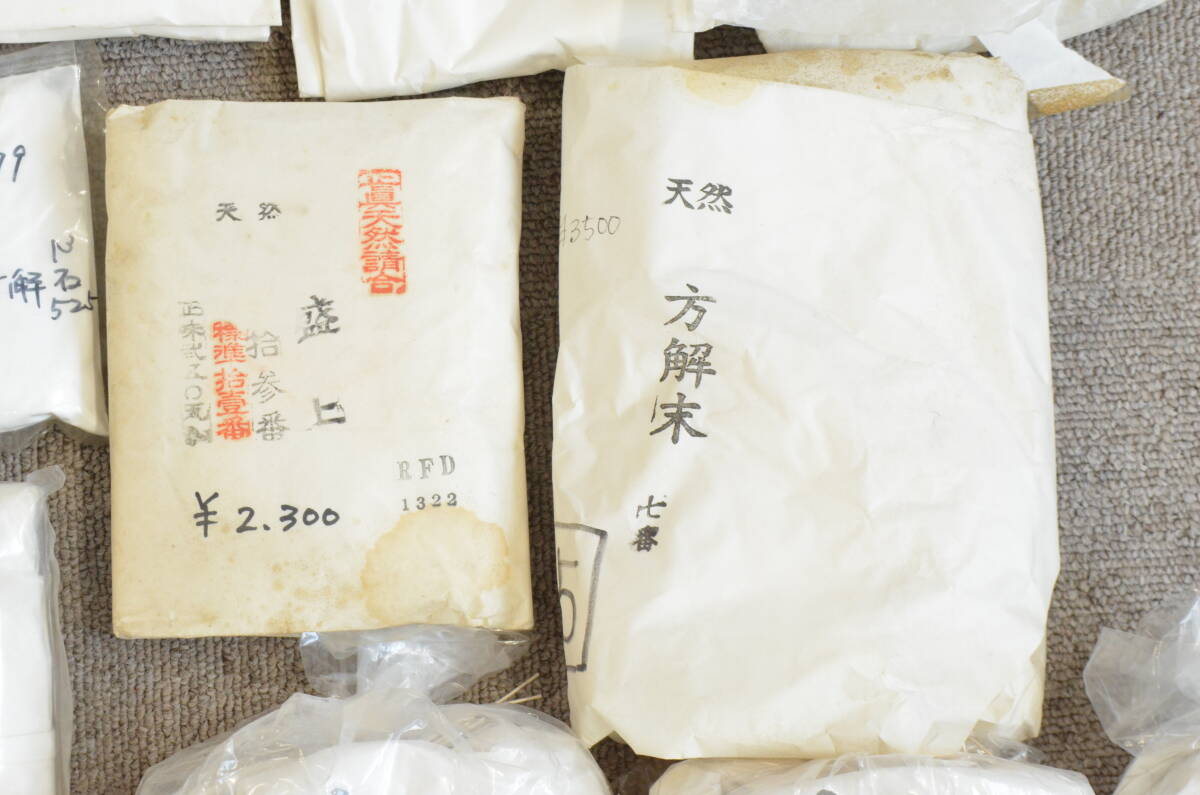 99
石
525
解
天然
純眞天然請合
盏上
拾参番
標準拾壹番
正味弐五〇瓦入
RFD
1322
¥2.300
天然
¥3500
方解末
七番